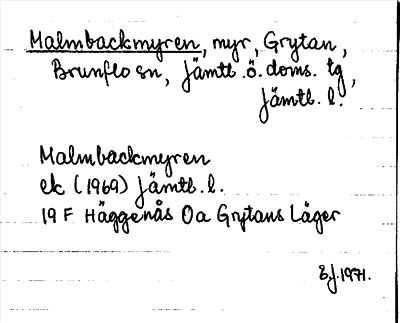 Malmbackmyren, myr, Grytan,
Brunflo sn, Jämtl. ö. doms. tg,
Jämtl. l.
Malmbackmyren
ek (1969) Jämtl. l.
19 F Häggenås Oa Grytans Läger
EJ. 1971.